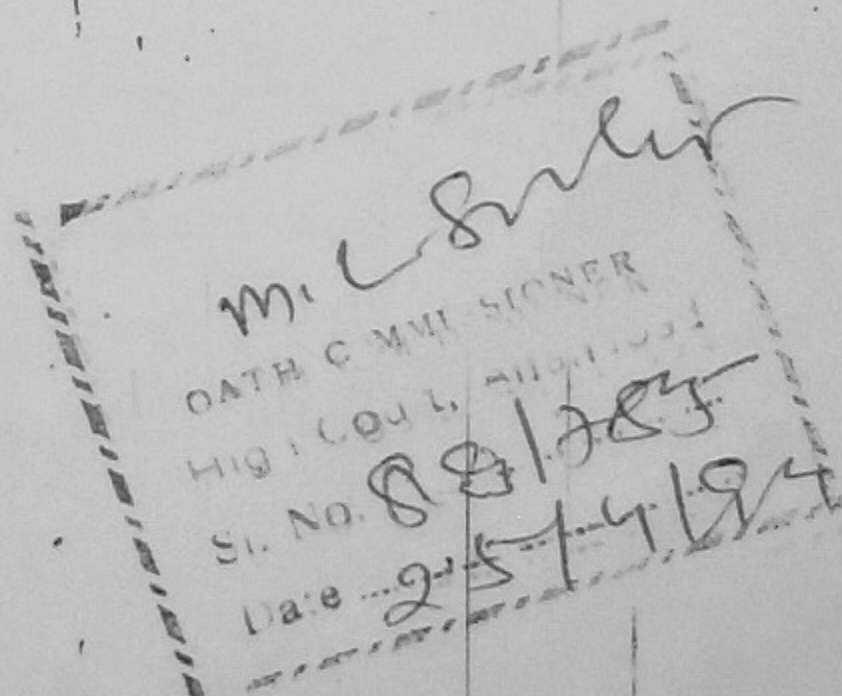 M. L
OATH COMMISSIONER
High Court, Allahabad
Sr. No. 88/785
Date ...25/4/94